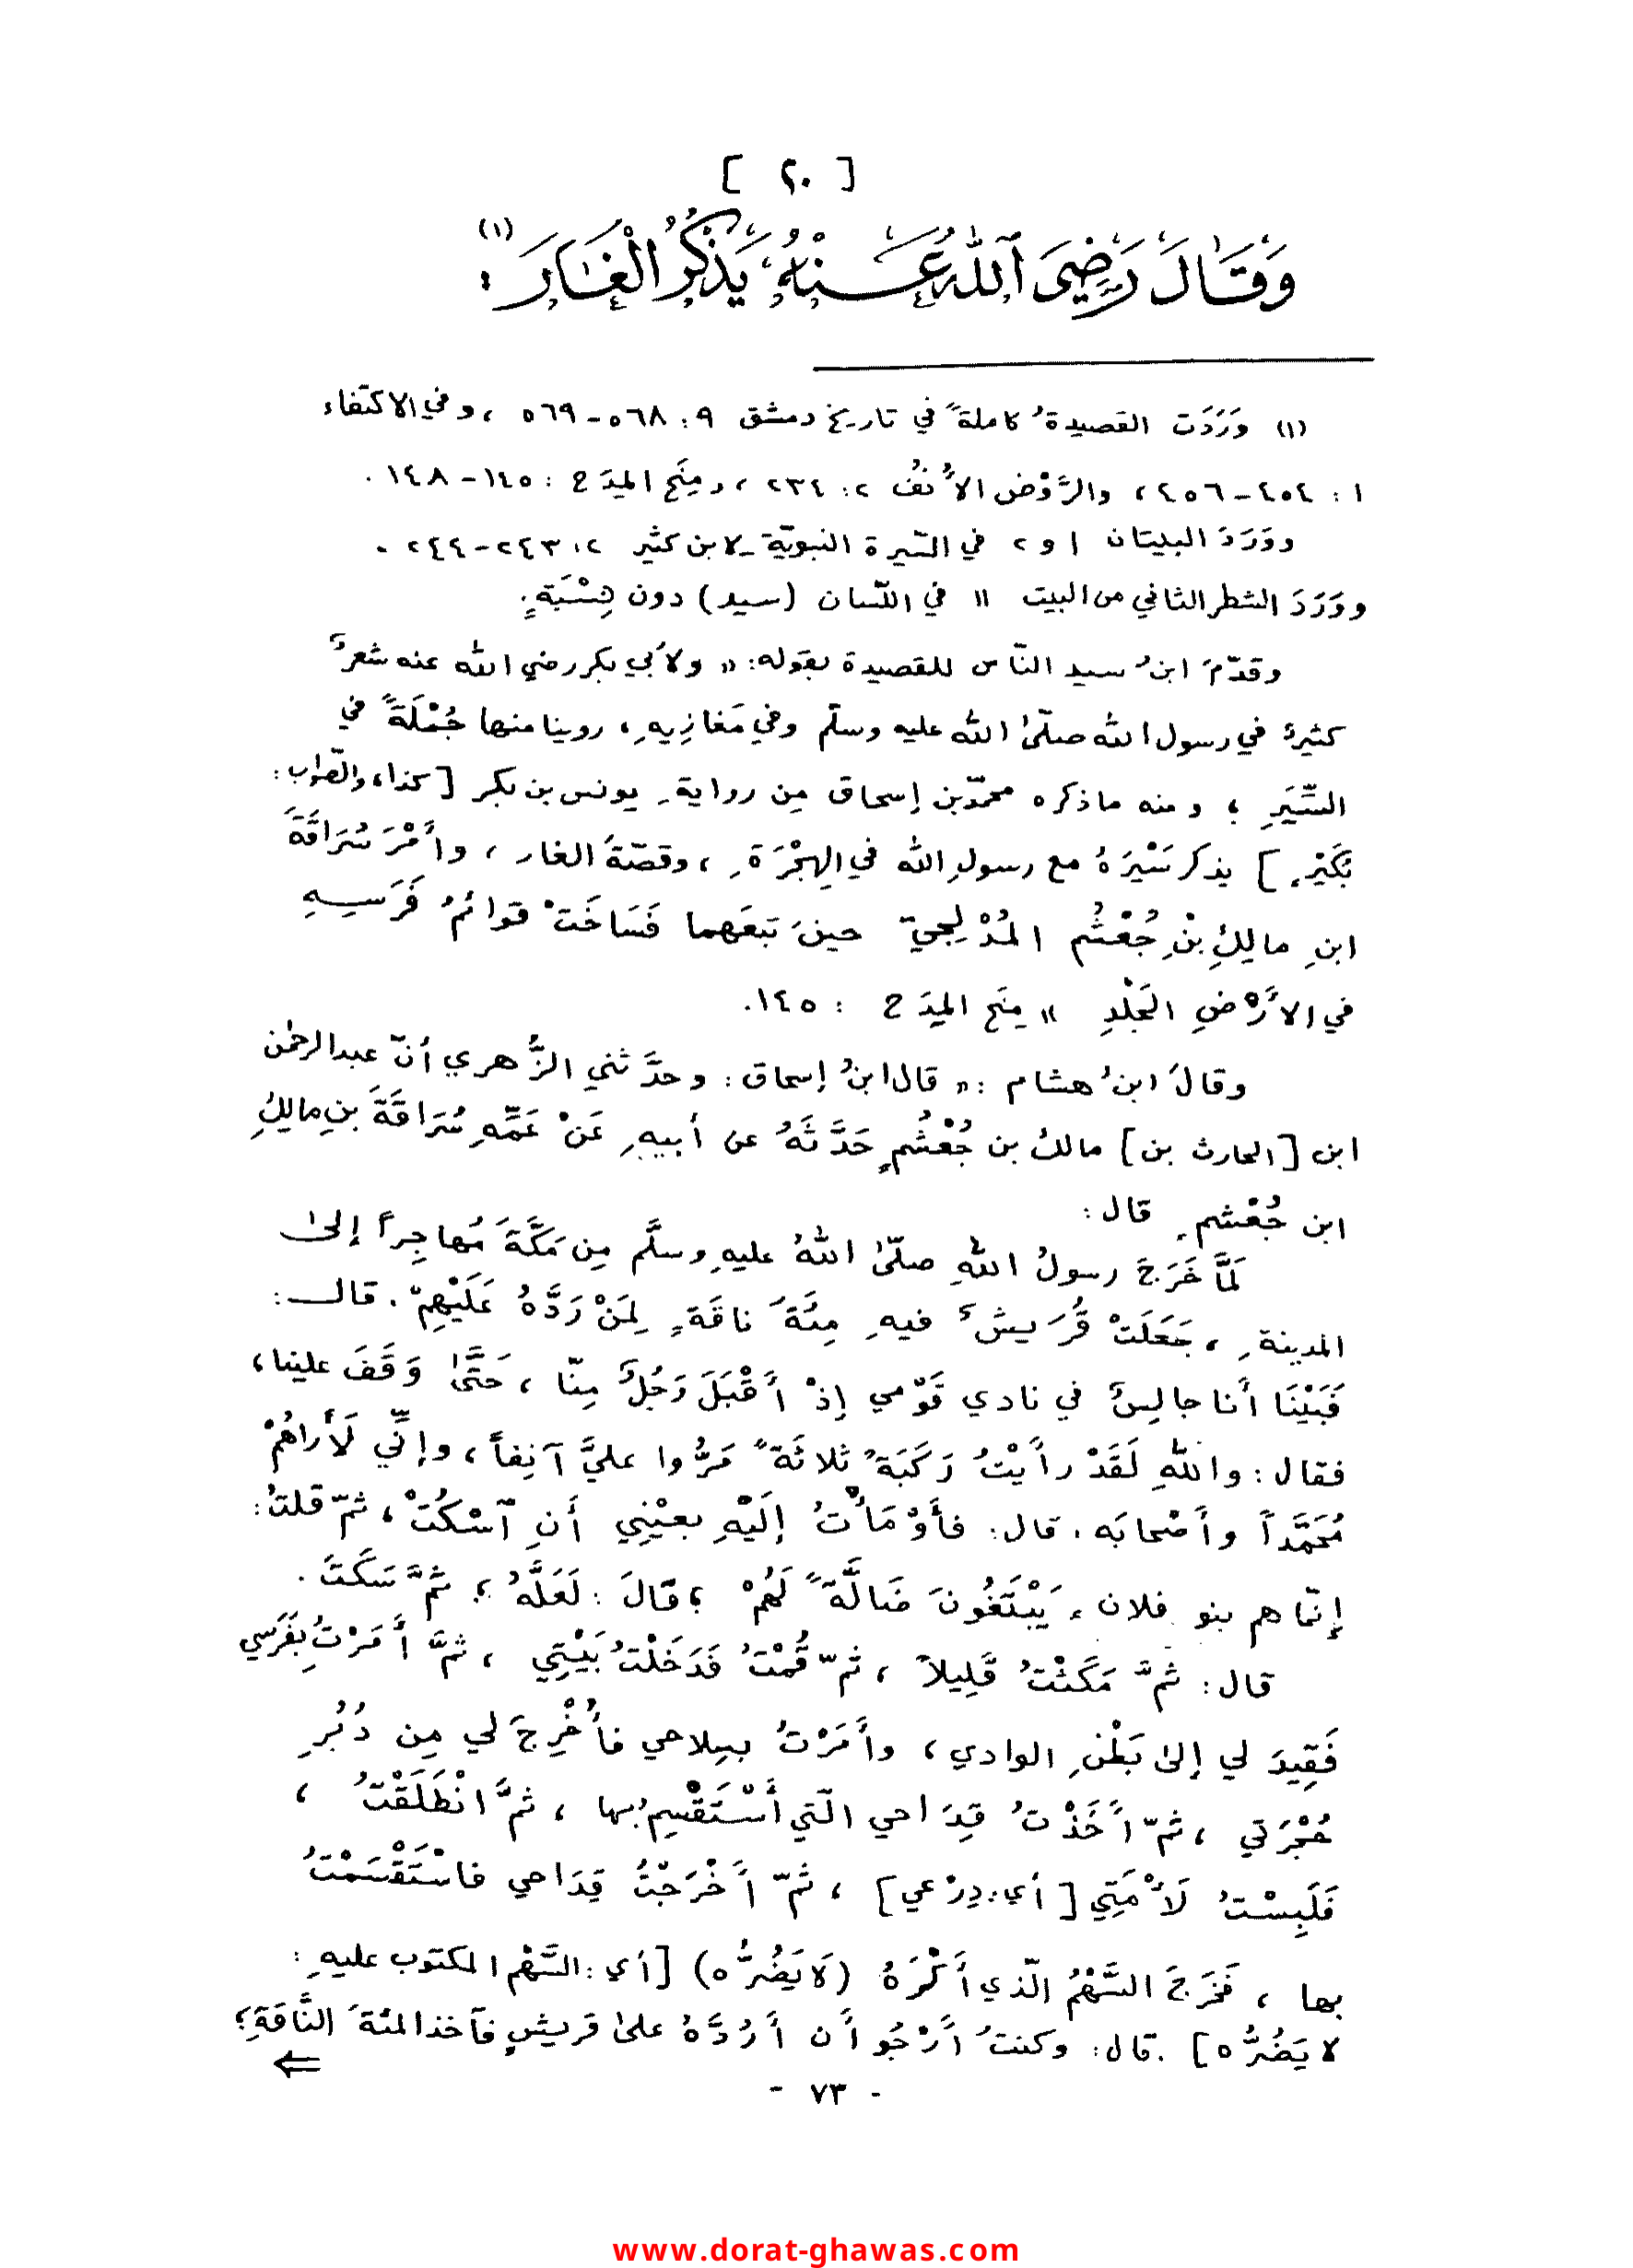 [ ٢٠ ]
وَقَالَ رَضِيَ ٱللهُ عَنْهُ يَذْكُرُ الْغَارَ :(١)
(١) وَرَدَت القصيدةُ كاملةً في تاريخ دمشق ٩ : ٥٦٨ - ٥٦٩ ، وفي الاكتفاء
١ : ٤٥٤ - ٤٥٦ ، والرَّوْض الأُنُف ٢ : ٢٣٤ ، ومِنَح المِدَح : ١٤٥ - ١٤٨ .
ووَرَدَ البيتان ١ و ٢ في السّيرة النبويّة لابن كثير ٢ : ٢٤٣ - ٢٤٤ .
ووَرَدَ الشطر الثاني من البيت ١١ في اللّسان (سيد) دون نِسْبَةٍ.
وقدّمَ ابنُ سيد النّاس للقصيدة بقوله: « ولأبي بكر رضي الله عنه شعرٌ
كثيرٌ في رسول الله صلّىٰ الله عليه وسلّم وفي مَغازِيهِ، روينا منها جُمْلَةً في
السِّيَرِ ؛ ومنه ماذكره محمّد بن إسحاق مِن روايةِ يونس بن بكر [ كذا، والصّواب :
بُكَيْرٍ ] يذكر سَيْرَهُ مع رسولِ الله في الهِجْرَةِ ، وقصّةَ الغار ، وأَمْرَ سُرَاقَةَ
ابنِ مالِكِ بْنِ جُعْشُمٍ المُدْلِجيّ حينَ تبعَهما فَسَاخَتْ قوائمُ فَرَسِهِ
في الأَرْضِ الجَلْدِ » مِنَح المِدَح : ١٤٥.
وقالَ ابنُ هشام : « قال ابنُ إسحاق : وحدَّثني الزُّهري أنّ عبدالرحمٰن
ابن [الحارث بن] مالك بن جُعْشُمٍ حَدَّثَهُ عن أبيهِ عَنْ عَمِّهِ سُرَاقَةَ بنِ مالِكِ
ابن جُعْشمٍ قال :
لمَّا خَرَجَ رسولُ اللهِ صلّىٰ اللهُ عليهِ وسلَّم مِن مَكَّةَ مُهاجِراً إلىٰ
المدينةِ ، جَعَلَتْ قُرَيشٌ فيهِ مِئَةَ ناقَةٍ لِمَنْ رَدَّهُ عَلَيْهِمْ . قال :
فَبَيْنَا أَنا جالِسٌ في نادي قَوْمي إذْ أَقْبَلَ رَجُلٌ مِنّا ، حَتَّىٰ وَقَفَ علينا،
فقال : واللهِ لَقَدْ رأَيْتُ رَكَبَةً ثلاثَةً مَرُّوا عليَّ آنِفاً ، وإنِّي لَأَراهُمْ
مُحَمَّداً وأَصْحابَه . قال : فأَوْمَأْتُ إلَيْهِ بعيْنِي أَنِ ٱسْكُتْ ، ثمّ قلتُ:
إنّما هم بنو فلان ، يَبْتَغُونَ ضَالَّةً لَهُمْ ؛ قالَ : لَعَلَّهُ ؛ ثمَّ سَكَتَ .
قال : ثمَّ مَكَثْتُ قَلِيلاً ، ثمّ قُمْتُ فَدَخَلْتُ بَيْتِي ، ثمَّ أَمَرْتُ بِفَرَسِي
فَقِيدَ لي إلىٰ بَطْنِ الوادي ، وأَمَرْتُ بسِلاحي فأُخْرِجَ لي مِن دُبُرِ
حُجْرَتي ، ثمّ أَخَذْتُ قِدَاحي الّتي أَسْتَقْسِمُ بها ، ثمَّ انْطَلَقْتُ ،
فَلَبِسْتُ لَأْمَتِي [ أي : دِرْعي] ، ثمّ أَخْرَجْتُ قِدَاحي فاسْتَقْسَمْتُ
بها ، فَخَرَجَ السَّهْمُ الّذي أَكْرَهُ (لَا يَضُرُّه) [أي : السَّهْم المكتوب عليهِ :
لا يَضُرُّه] . قال : وكنتُ أَرْجُو أَن أَرُدَّهُ علىٰ قريشٍ فآخذ المئةَ النَّاقَةِ؛
⇐
- ٧٣ -
www.dorat-ghawas.com